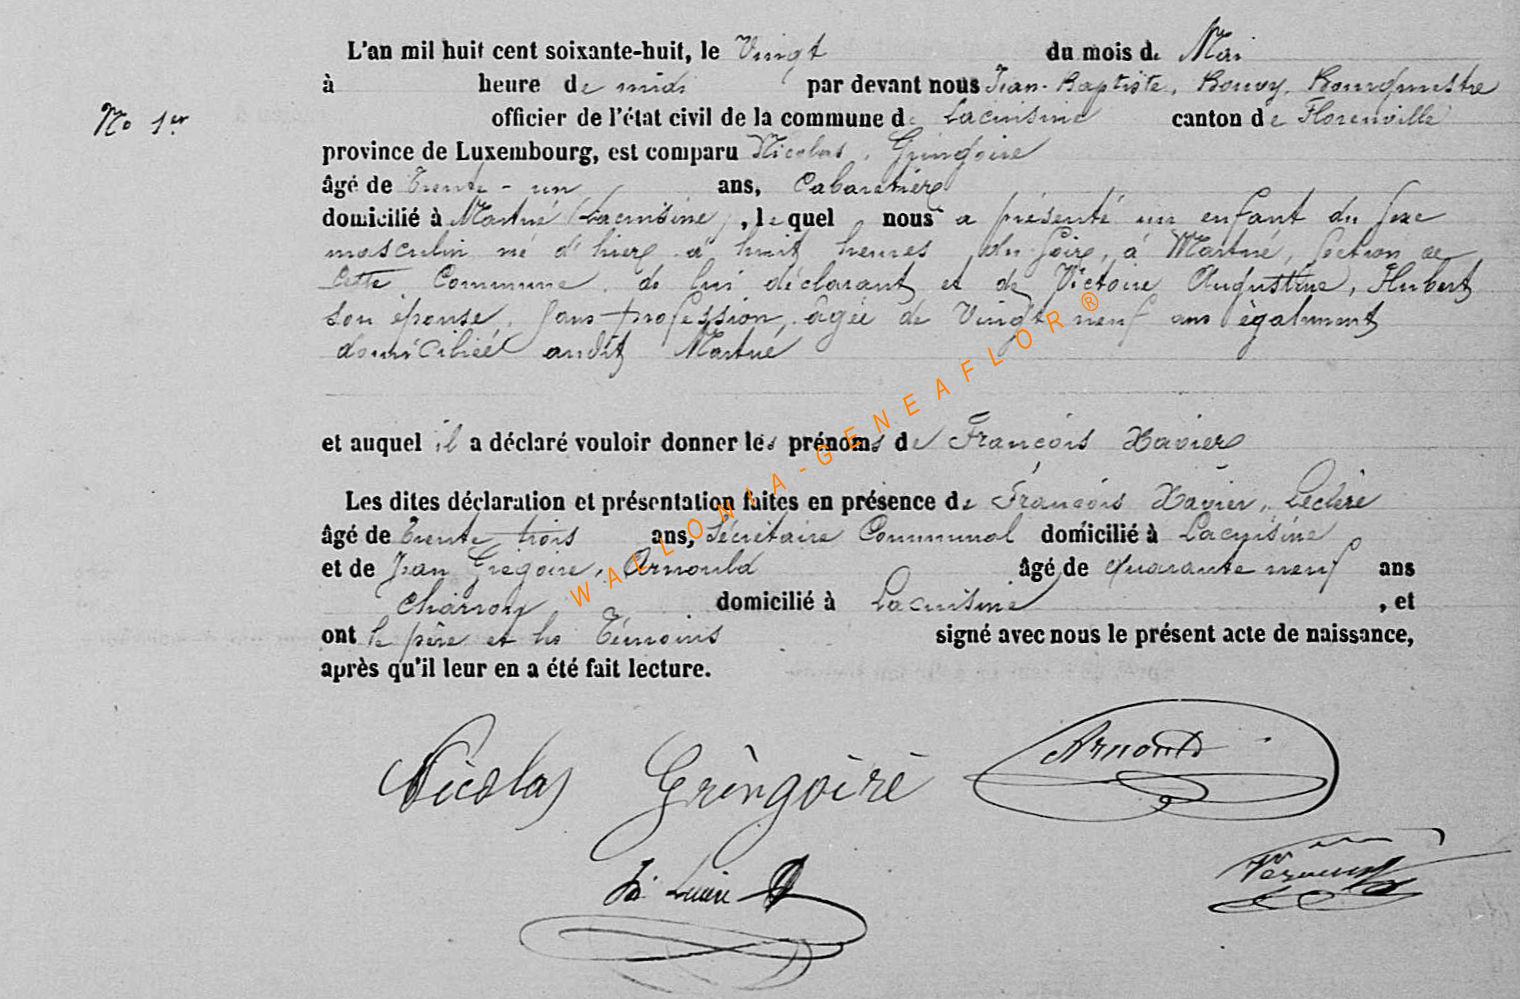 L'an mil huit cent soixante-huit, le Vingt du mois de Mai
à heure de midi par devant nous Jean-Baptiste, Bouvy, Bourgmestre
No 1er
officier de l'état civil de la commune de Lacuisine canton de Florenville
province de Luxembourg, est comparu Nicolas, Gringoire
âgé de Trente-un ans, Cabaretière
domicilié à Martué (Lacuisine), lequel nous a présenté un enfant du sexe
masculin né d'hier à huit heures du soir, à Martué, section de
cette Commune, de lui déclarant et de Victoire Augustine, Hubert
son épouse, sans profession, âgée de Vingt neuf ans également
domiciliée audit Martué
et auquel il a déclaré vouloir donner les prénoms de François Xavier
Les dites déclaration et présentation faites en présence de François Xavier, Leclère
âgé de Trente trois ans, Secrétaire Communal domicilié à Lacuisine
et de Jean Gregoire, Arnould âgé de quarante neuf ans
Charron domicilié à Lacuisine, et
ont le père et les Témoins signé avec nous le présent acte de naissance,
après qu'il leur en a été fait lecture.
WALLONIA-GENEAFLOR®
Nicolas Gringoire Arnould